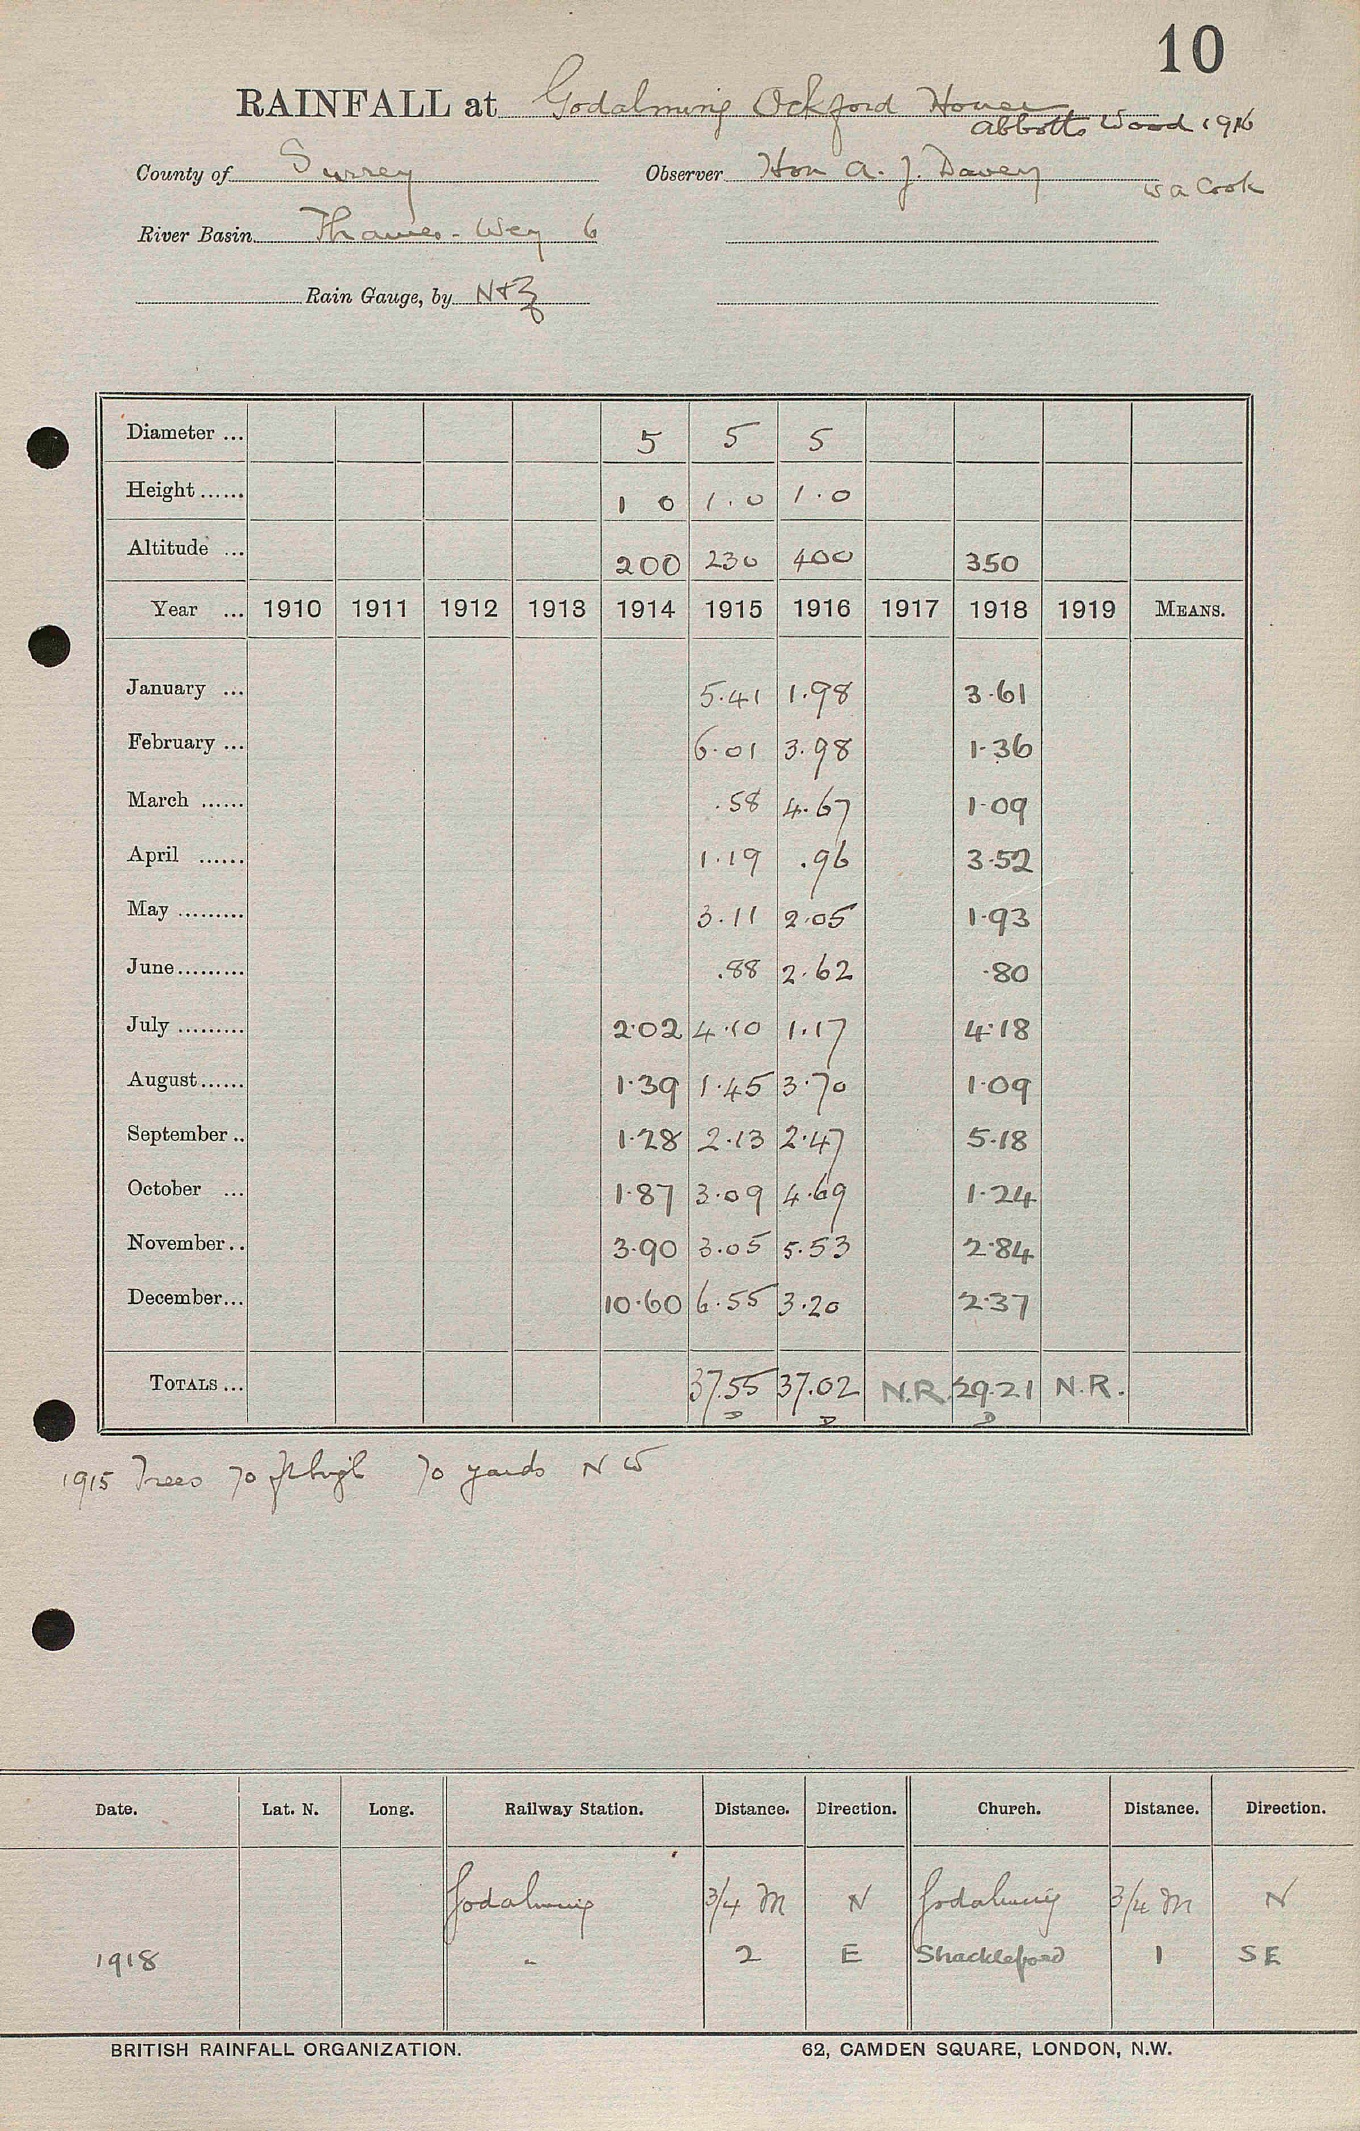 10
RAINFALL at Godalming Ockford House
Abbotts Wood 1916
County of Surrey Observer Hon A. J. Davey
W A Cook
River Basin Thames - Wey 6
Rain Gauge, by N+Z
Diameter ... 5 5 5
Height ...... 1 0 1.0 1.0
Altitude ... 200 230 400 350
Year ... 1910 1911 1912 1913 1914 1915 1916 1917 1918 1919 MEANS.
January ... 5.41 1.98 3.61
February ... 6.01 3.98 1.36
March ...... .58 4.67 1.09
April ...... 1.19 .96 3.52
May ......... 3.11 2.05 1.93
June ......... .88 2.62 .80
July ......... 2.02 4.10 1.17 4.18
August ...... 1.39 1.45 3.70 1.09
September .. 1.28 2.13 2.47 5.18
October ... 1.87 3.09 4.69 1.24
November .. 3.90 3.05 5.53 2.84
December ... 10.60 6.55 3.20 2.37
TOTALS ... 37.55 37.02 N.R. 29.21 N.R.
D D D
1915 Trees 70 ft high 70 yards N W
Date. Lat. N. Long. Railway Station. Distance. Direction. Church. Distance. Direction.
Godalming 3/4 M N Godalming 3/4 M N
1918 " 2 E Shackleford 1 SE
BRITISH RAINFALL ORGANIZATION. 62, CAMDEN SQUARE, LONDON, N.W.